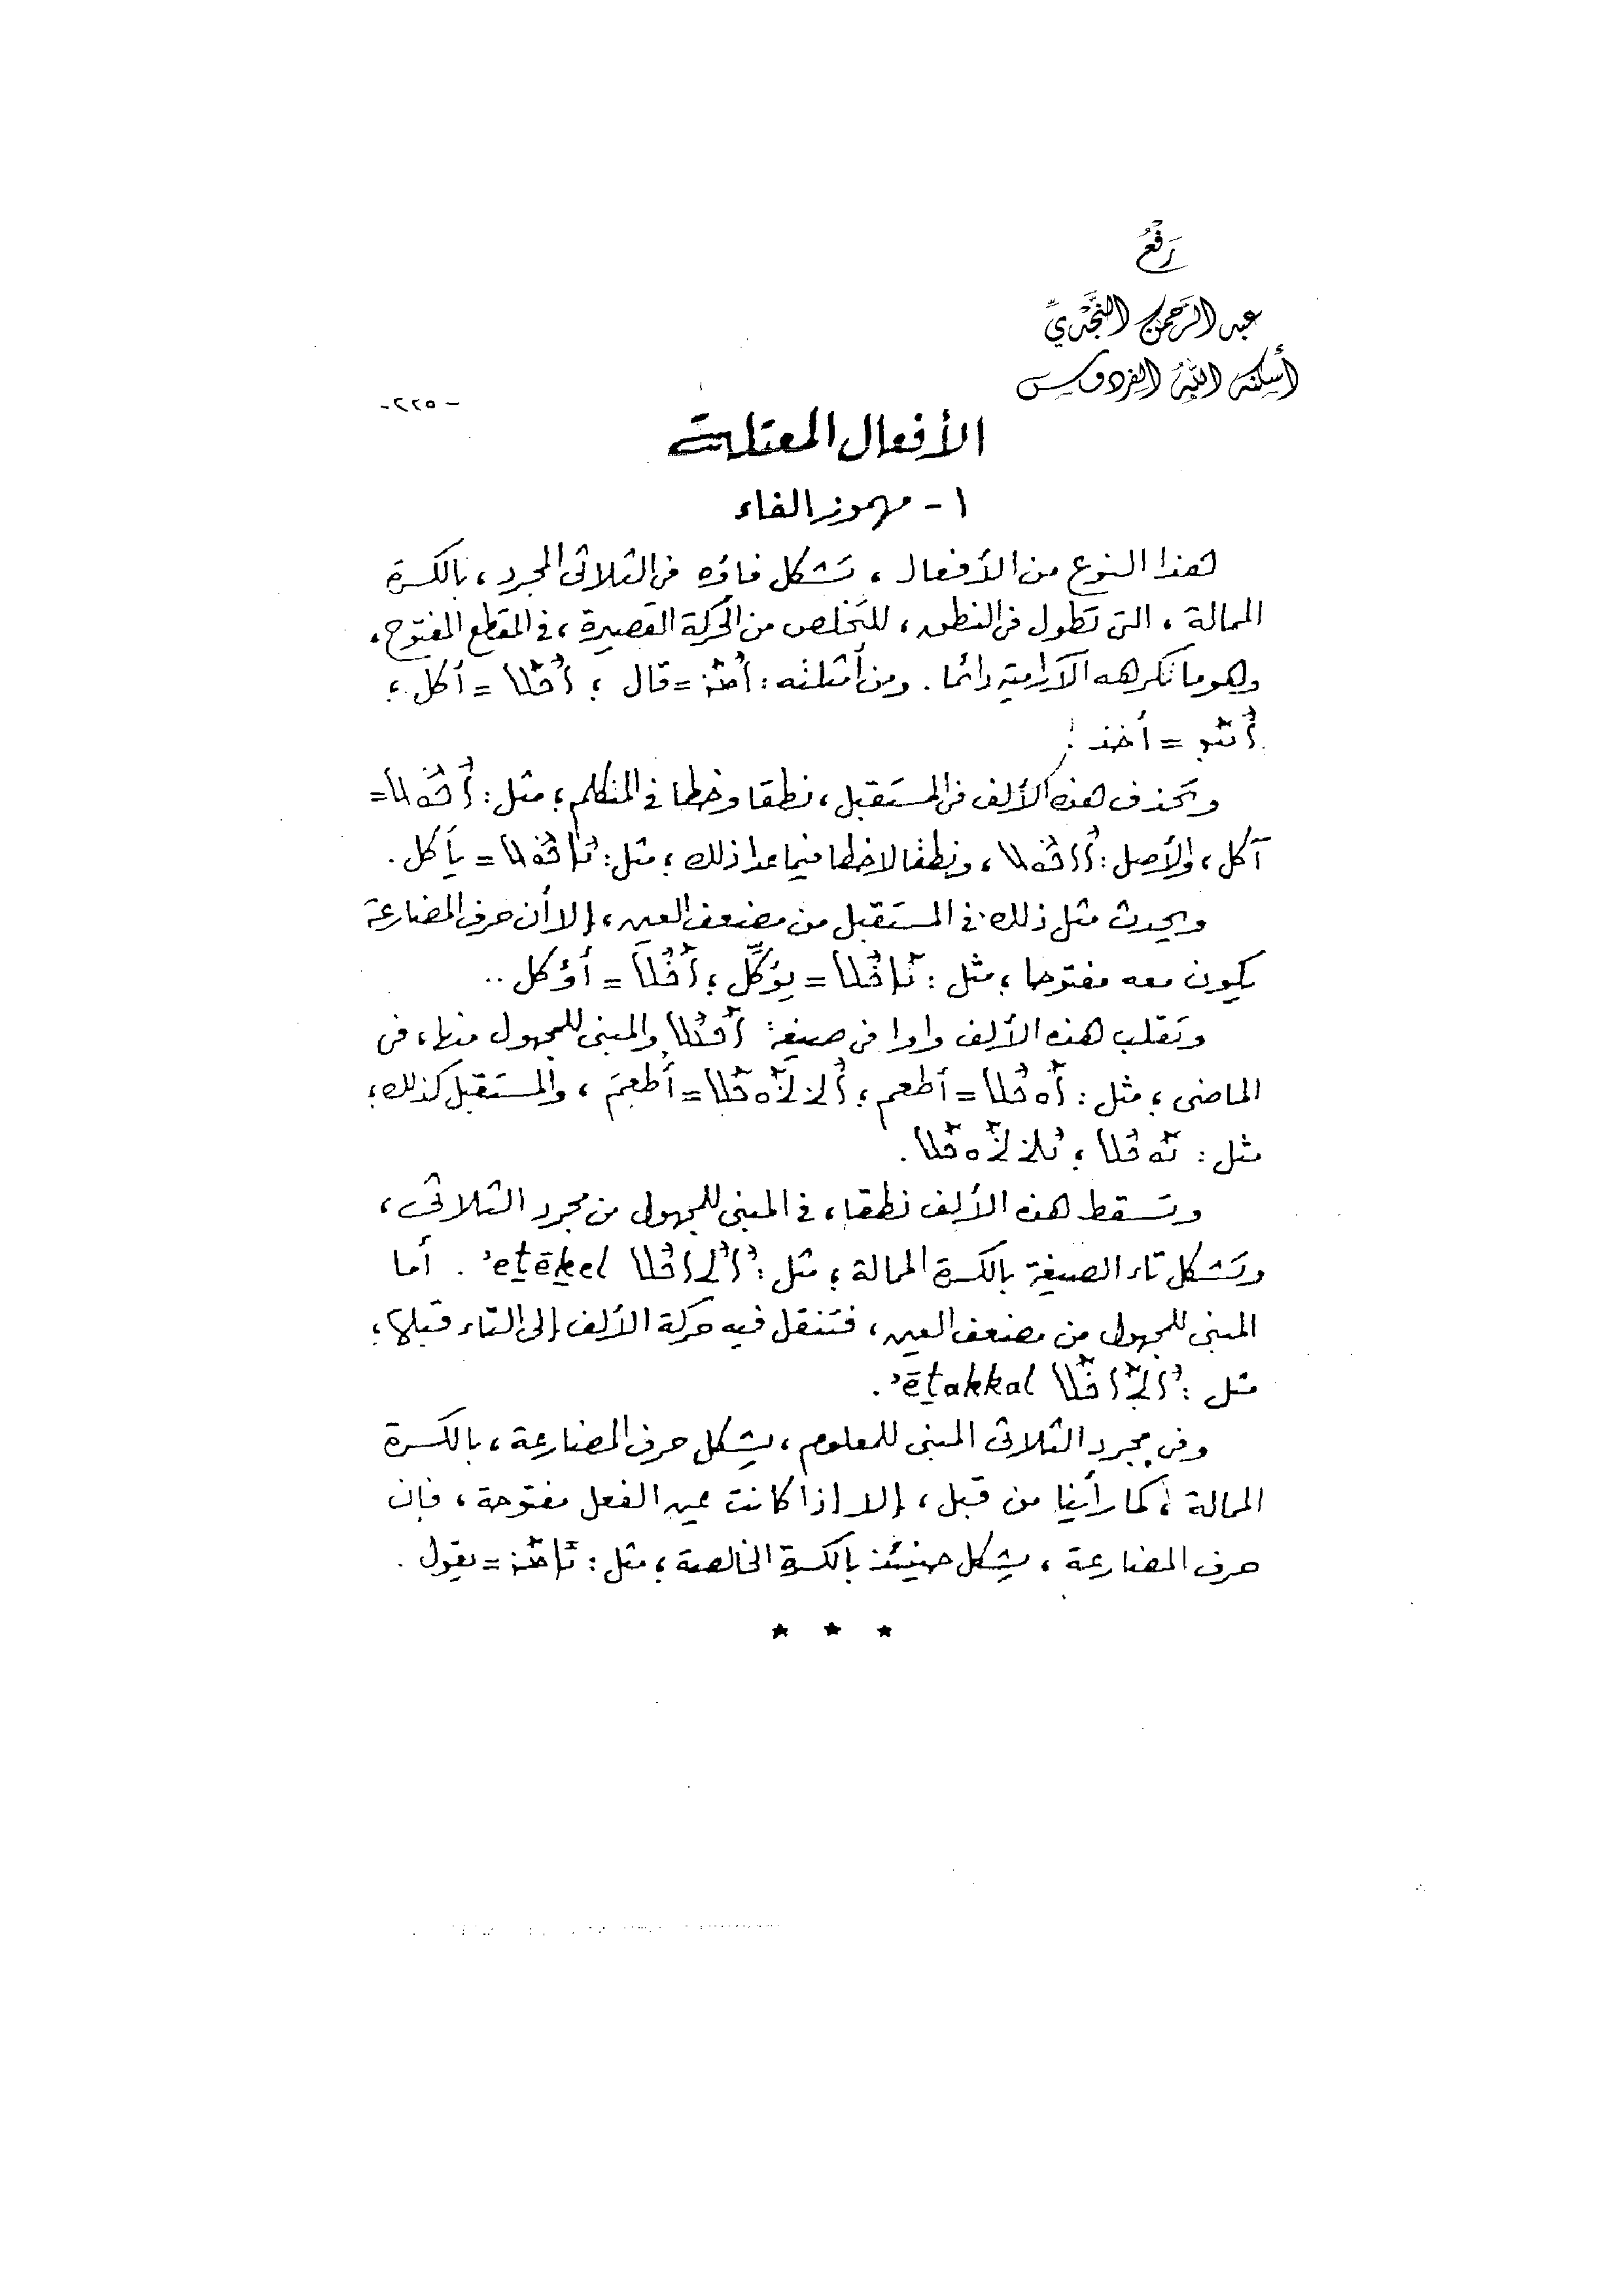 رَفْعُ
عبد الرَّحمن النَّجْديِّ
أسكنه اللهُ الفردوس
- ٢٢٥ -
الأفعال المعتلة
١ - مهموز الفاء
هذا النوع من الأفعال ، تشكل فاؤه فى الثلاثى المجرد ، بالكسرة
الممالة ، التى تطول فى النطق ، للتخلص من الحركة القصيرة ، فى المقطع المفتوح ،
وهو ما تكرهه الآرامية دائما . ومن أمثلته : ܐܡܪ = قال ؛ ܐܟܠ = أكل ؛
ܐܚܕ = أخذ .
وتحذف هذه الألف فى المستقبل ، نطقا وخطا فى المتكلم ؛ مثل : ܐܟܘܠ =
آكل ، والأصل : ܐܐܟܘܠ ، ونطقا لا خطا فيما عدا ذلك ؛ مثل : ܢܐܟܘܠ = يأكل .
ويحدث مثل ذلك فى المستقبل من مضعف العين ، إلا أن حرف المضارعة
يكون معه مفتوحا ؛ مثل : ܢܐܟܠ = يؤكِّل ؛ ܐܟܠ = أؤكل ..
وتقلب هذه الألف واوا فى صيغة : ܐܩܛܠ والمبنى للمجهول منها ، فى
الماضى ؛ مثل : ܐܘܟܠ = أطعم ؛ ܐܬܬܘܟܠ = أُطعِمَ ، والمستقبل كذلك ؛
مثل : ܢܘܟܠ ؛ ܢܬܬܘܟܠ .
وتسقط هذه الألف نطقا ، فى المبنى للمجهول من مجرد الثلاثى ،
وتشكل تاء الصيغة بالكسرة الممالة ؛ مثل : ܐܬܐܟܠ ʾeṯēḵel . أما
المبنى للمجهول من مضعف العين ، فتنقل فيه حركة الألف إلى التاء قبلها ؛
مثل : ܐܬܐܟܠ ʾēṯakkal .
وفى مجرد الثلاثى المبنى للمعلوم ، يشكل حرف المضارعة ، بالكسرة
الممالة ، كما رأينا من قبل ، إلا إذا كانت عين الفعل مفتوحة ، فإن
حرف المضارعة ، يشكل حينئذ بالكسرة الخالصة ؛ مثل : ܢܐܡܪ = يقول .
* * *